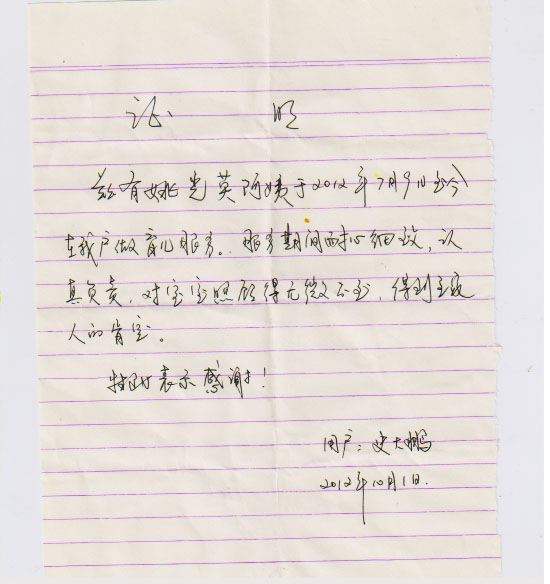 证 明
兹有姚光英阿姨于2012年7月9日至今
在我户做育儿服务。服务期间耐心细致，认
真负责，对宝宝照顾得无微不至，得到全家
人的肯定。
特此表示感谢！
用户：史大鹏
2012年10月1日.